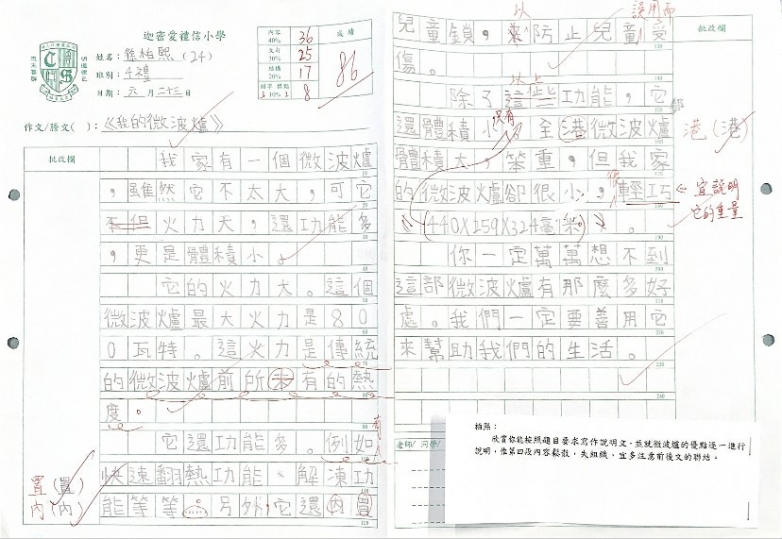 迦密愛禮信小學
姓名：(24)
班別：4禮
日期：元月二十三日
作文/謄文( )：《我的微波爐》
內容 40% 36
文句 30% 25
結構 20% 17
10% 8
成績
86
批改欄
我家有一個微波爐
，雖然它不太大，可它
不但火力大，還功能多
，更是體積小。
它的火力大。這個
微波爐最大火力是80
0瓦特。這火力是傳統
的微波爐前所未有的熱
度。
它還功能多。例如
有
快速翻熱功能、解凍功
能等等。另外，它還內置
置(置)
內(內)
批改欄
以
誤用而
兒童鎖，來防止兒童受
傷。
以上
除了這些功能，它
只有
還體積小。全港微波爐
港(港)
體積大，笨重，但我家
的微波爐卻很小，輕巧
宜說明
它的重量
(440X259X324毫米)。
你一定萬萬想不到
這部微波爐有那麼多好
處。我們一定要善用它
來幫助我們的生活。
老師/同學/
柏熙：
欣賞你能按照題目要求寫作說明文，並就微波爐的優點逐一進行
說明，惟第四段內容鬆散，失組織，宜多注意前後文的聯結。